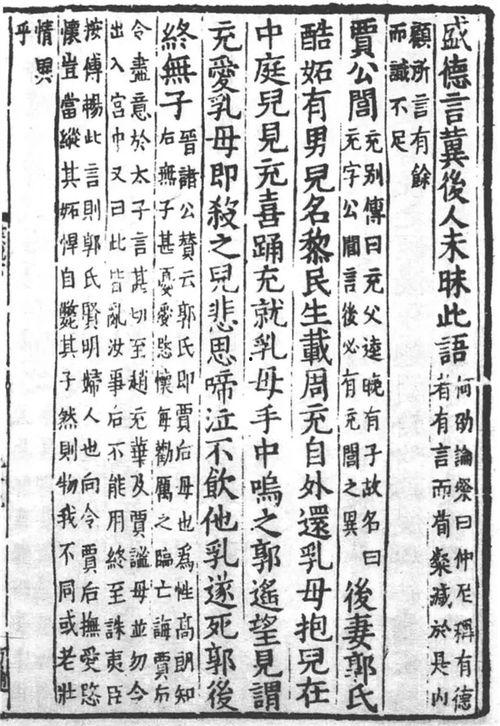 盛德言冀後人未昧此語
何劭論粲曰仲尼稱有德
者有言而荀粲減於是內
顧所言有餘
而識不足
賈公閭
充別傳曰充父逵晚有子故名曰
充字公閭言後必有充閭之異
後妻郭氏
酷妬有男兒名黎民生載周充自外還乳母抱兒在
中庭兒見充喜踊充就乳母手中嗚之郭遙望見謂
充愛乳母即殺之兒悲思啼泣不飲他乳遂死郭後
終無子
晉諸公贊云郭氏即賈后母也為性高朗知
后無子甚憂愛愍懷每勸厲之臨亡誨賈后
令盡意於太子言甚切至趙充華及賈謐母並勿令
出入宮中又曰此皆亂汝事后不能用終至誅夷臣
按傅暢此言則郭氏賢明婦人也向令賈后撫愛愍
懷豈當縱其妬悍自斃其子然則物我不同或老壯
情異
乎